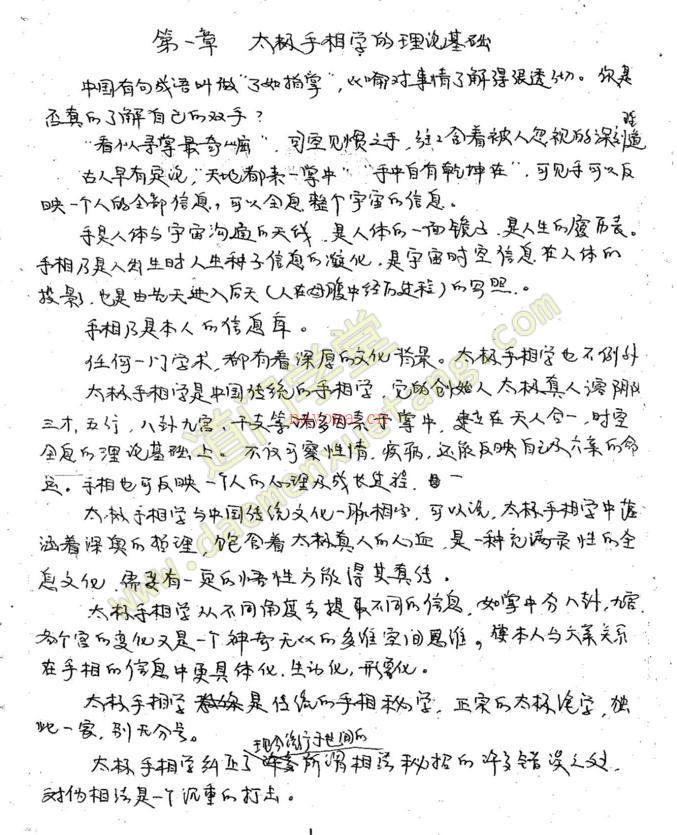 第一章 太极手相学的理论基础
中国有句成语叫做"了如指掌",比喻对事情了解得很透彻。你是
否真的了解自己的双手?
"看似寻常最奇崛",司空见惯之手,往往含着被人忽视的深刻
古人早有定说,"天地都来一掌中""手中自有乾坤在",可见手可以反
映一个人的全部信息,可以全息整个宇宙的信息。
手是人体与宇宙沟通的天线,是人体的一面镜子,是人生的履历表。
手相乃是人出生时人生种子信息的凝化,是宇宙时空信息在人体的
投影,也是由先天进入后天(人在母腹中经历过程)的写照。
手相乃是本人的信息库。
任何一门学术,都有着深厚的文化背景。太极手相学也不例外
太极手相学是中国传统的手相学,它的创始人太极真人溶阴阳
三才,五行,八卦九宫,干支等诸多因素于掌中,建立在天人合一,时空
全息的理论基础上。不仅可察性情,疾病,还能反映自己及六亲的命
运。手相也可反映一个人的心理及成长过程。
太极手相学与中国传统文化一脉相学,可以说,太极手相学中蕴
涵着深奥的哲理,饱含着太极真人的心血,是一种充满灵性的全
息文化,需要有一定的悟性方放得其真传。
太极手相学从不同角度去提取不同的信息,如掌中分八卦,九宫
各个宫的变化又是一个神奇无比的多维空间思维。使本人与六亲关系
在手相的信息中更具体化,生动化,形象化。
太极手相学是传统的手相秘学,正宗的太极绝学,独
此一家,别无分号。
现今流行于世间的
太极手相学纠正了许多所谓相法秘招的许多错误之处,
对伪相法是一个沉重的打击。
道门学堂
www.daomenxuetang.com